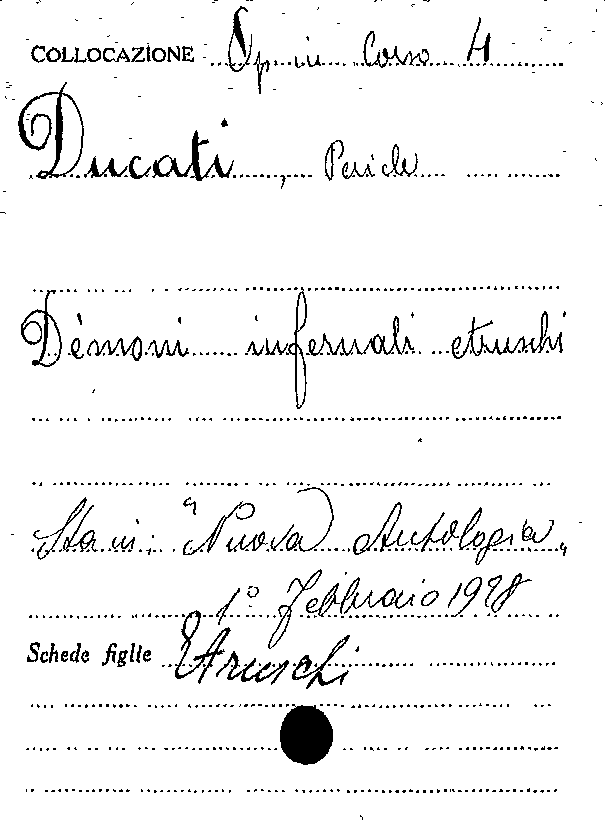 COLLOCAZIONE Op. in Corso 4
Ducati, Pericle
Dèmoni infernali etruschi
Sta in: "Nuova Antologia"
1º Febbraio 1928
Schede figlie Etruschi